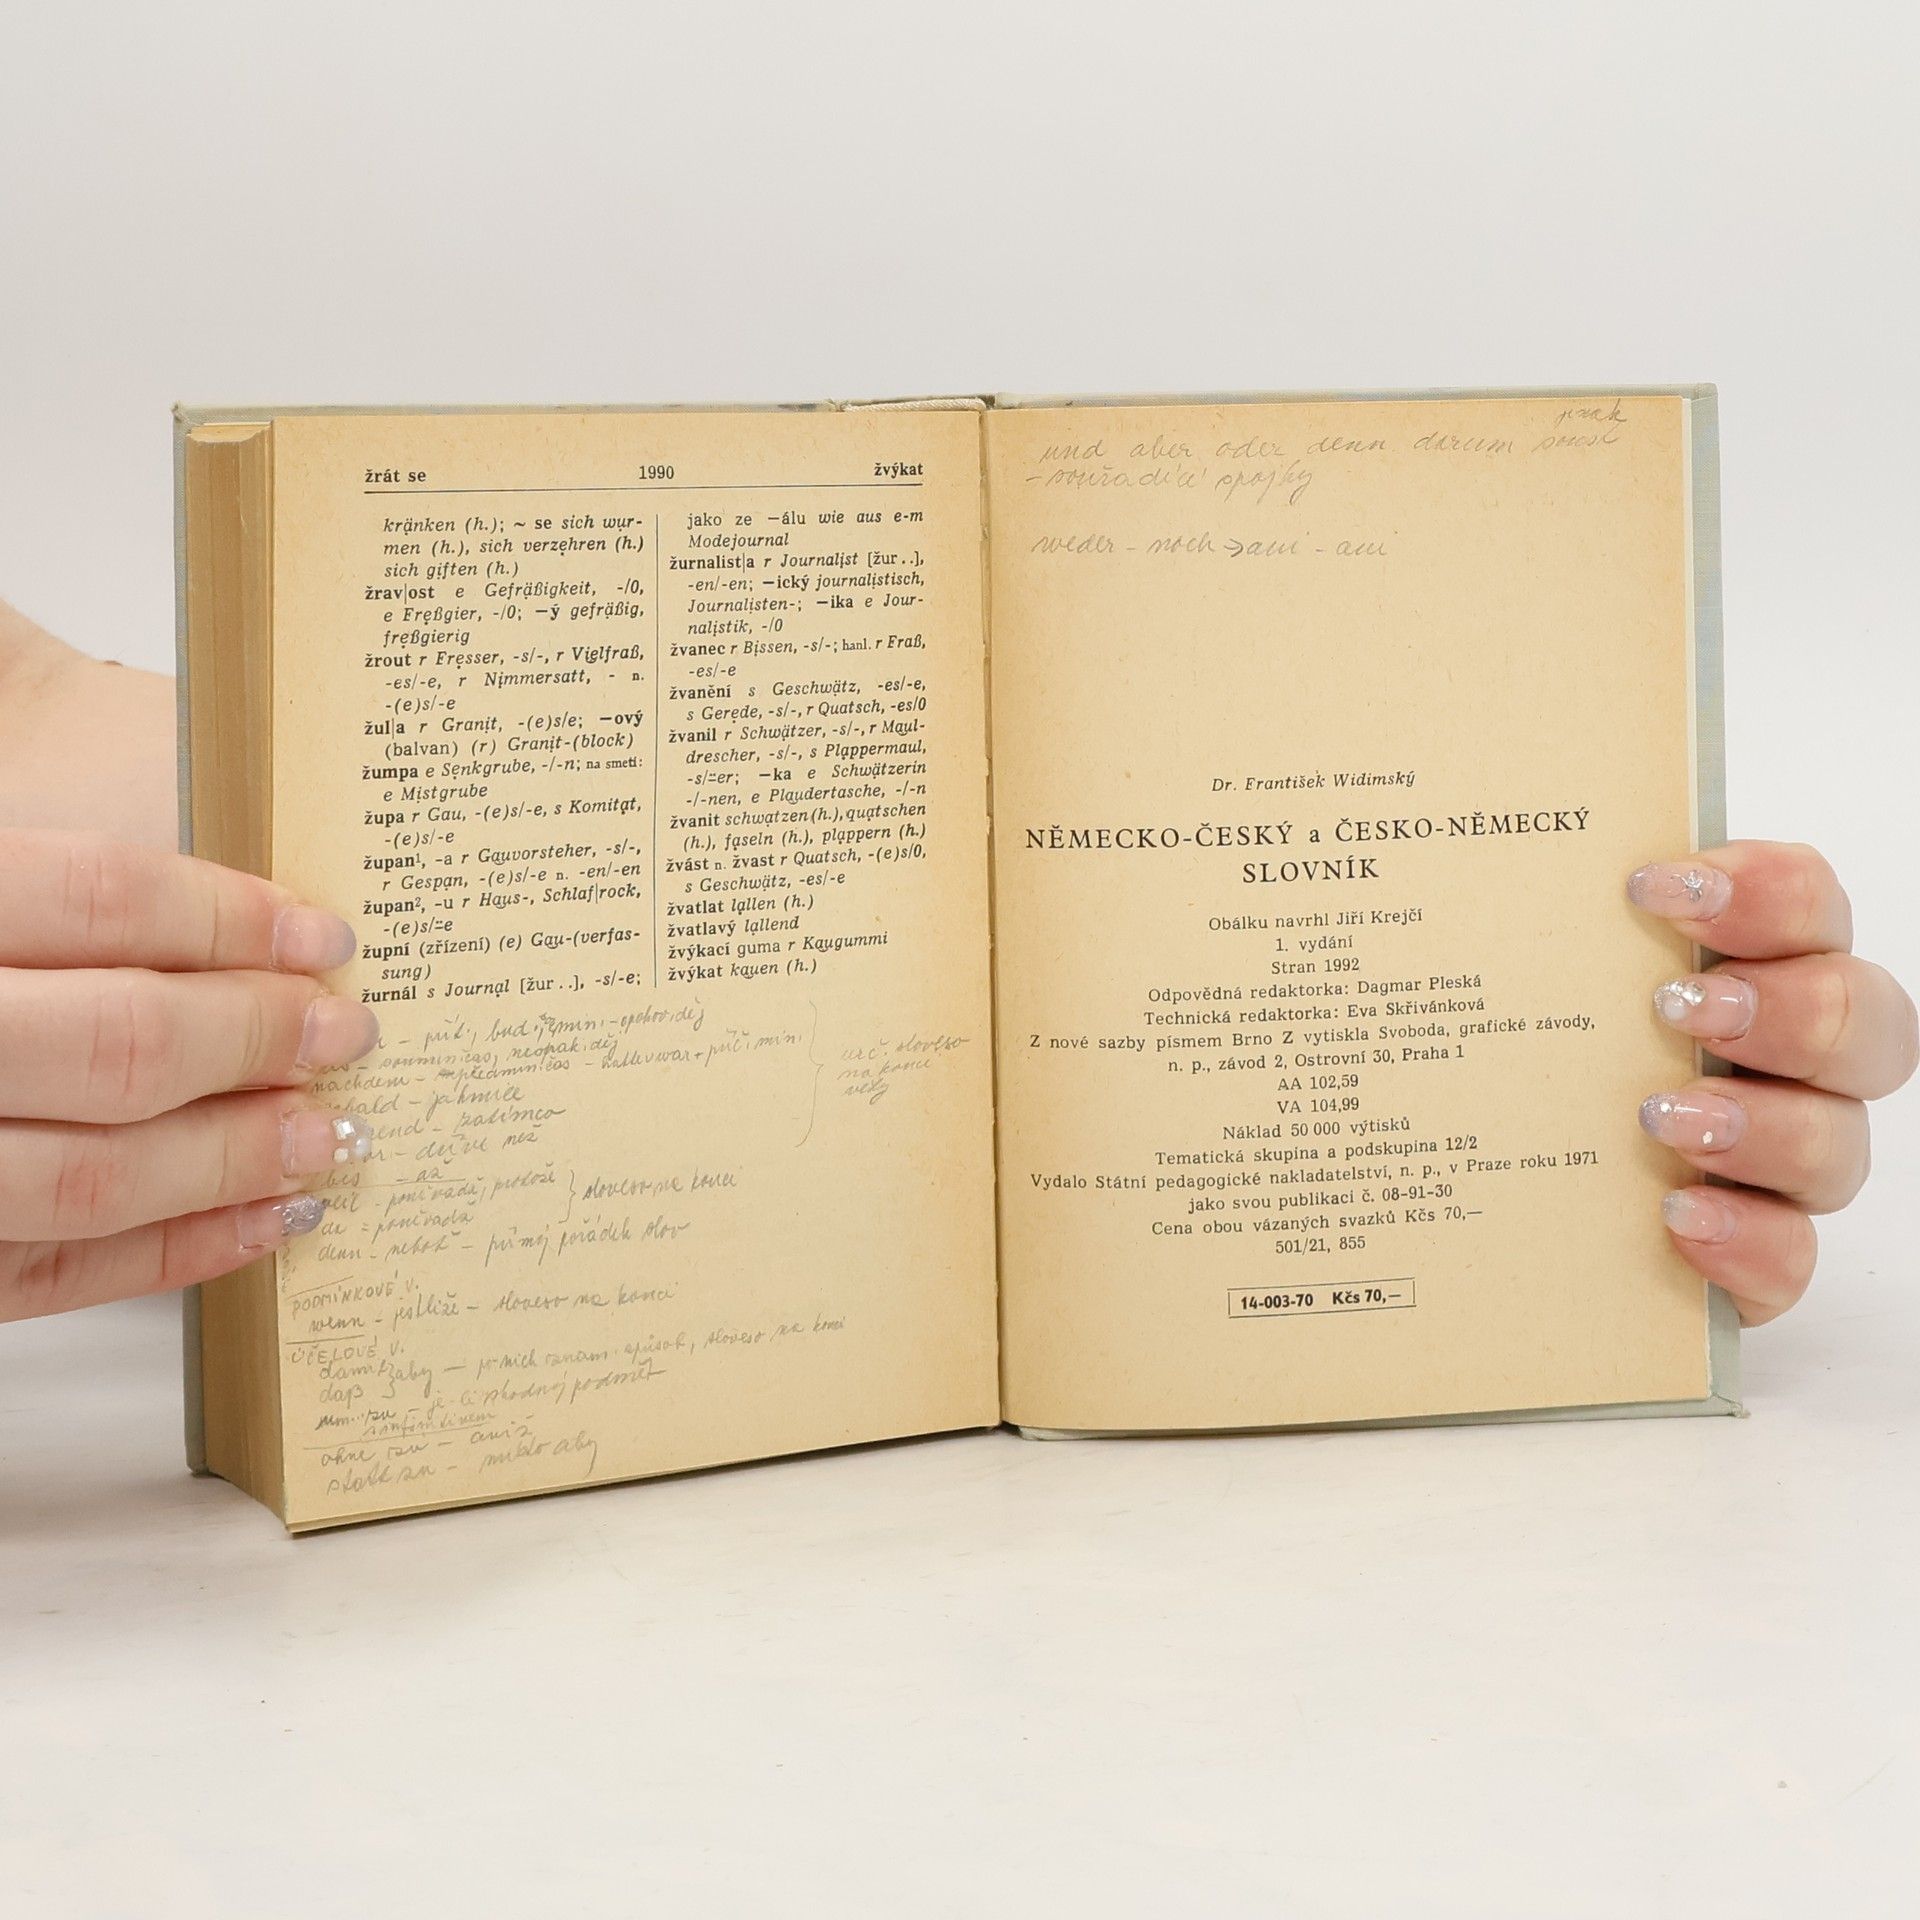 žrát se 1990 žvýkat
kränken (h.); ~ se sich wur-
men (h.), sich verzehren (h.)
sich giften (h.)
žrav|ost e Gefräßigkeit, -/0,
e Freßgier, -/0; —ý gefräßig,
freßgierig
žrout r Fresser, -s/-, r Vielfraß,
-es/-e, r Nimmersatt, - n.
-(e)s/-e
žul|a r Granit, -(e)s/e; —ový
(balvan) (r) Granit-(block)
žumpa e Senkgrube, -/-n; na smetí:
e Mistgrube
župa r Gau, -(e)s/-e, s Komitat,
-(e)s/-e
župan¹, -a r Gauvorsteher, -s/-,
r Gespan, -(e)s/-e n. -en/-en
župan², -u r Haus-, Schlaf|rock,
-(e)s/⸚e
župní (zřízení) (e) Gau-(verfas-
sung)
žurnál s Journal [žur . .], -s/-e;
jako ze —álu wie aus e-m
Modejournal
žurnalist|a r Journalist [žur . .],
-en/-en; —ický journalistisch,
Journalisten-; —ika e Jour-
nalistik, -/0
žvanec r Bissen, -s/-; hanl. r Fraß,
-es/-e
žvanění s Geschwätz, -es/-e,
s Gerede, -s/-, r Quatsch, -es/0
žvanil r Schwätzer, -s/-, r Maul-
drescher, -s/-, s Plappermaul,
-s/⸚er; —ka e Schwätzerin
-/-nen, e Plaudertasche, -/-n
žvanit schwatzen (h.), quatschen
(h.), faseln (h.), plappern (h.)
žvást n. žvast r Quatsch, -(e)s/0,
s Geschwätz, -es/-e
žvatlat lallen (h.)
žvatlavý lallend
žvýkací guma r Kaugummi
žvýkat kauen (h.)
nachdem – předmin. čas
urč. sloveso
na konci
věty
– jakmile
– zatímco
– dříve než
bis – až
– poněvadž, protože } sloveso na konci
da = poněvadž
denn – neboť – přímý pořádek slov
PODMÍNKOVÉ V.
wenn – jestliže – sloveso na konci
ÚČELOVÉ V.
damit } aby – sloveso na konci
daß
um...zu – je-li shodný podmět
s infinitivem
ohne zu – aniž
statt zu – místo aby
jinak
und aber oder denn darum sonst
– souřadící spojky
weder – noch → ani – ani
Dr. František Widimský
NĚMECKO-ČESKÝ a ČESKO-NĚMECKÝ
SLOVNÍK
Obálku navrhl Jiří Krejčí
1. vydání
Stran 1992
Odpovědná redaktorka: Dagmar Pleská
Technická redaktorka: Eva Skřivánková
Z nové sazby písmem Brno Z vytiskla Svoboda, grafické závody,
n. p., závod 2, Ostrovní 30, Praha 1
AA 102,59
VA 104,99
Náklad 50 000 výtisků
Tematická skupina a podskupina 12/2
Vydalo Státní pedagogické nakladatelství, n. p., v Praze roku 1971
jako svou publikaci č. 08-91-30
Cena obou vázaných svazků Kčs 70,—
501/21, 855
14-003-70 Kčs 70,—